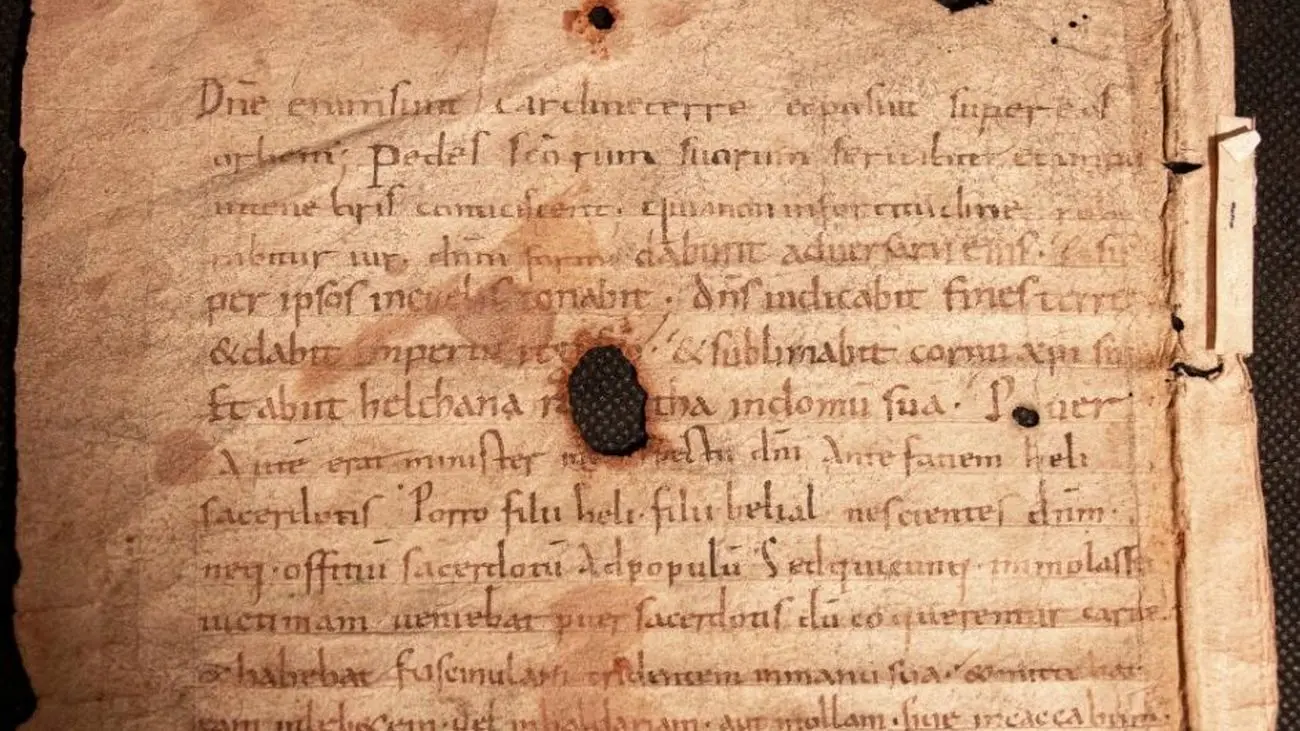 Dn̄e enim sunt cardine terre et posuit super eos
orbem; Pedes sc̄orum suorum servabit et impii
in tenebris conticiscent, quia non in fortitudine
rabitur vir. dn̄m formidabunt adversarii eius. & su
per ipsos in celis tonabit. dn̄s iudicabit fines terre
& dabit imperiu & sublimabit cornu xp̄i su
Et abiit helchana tha in domū sua. P uer
Autē erat minister dn̄i Ante faciem heli
sacerdotis Porro filii heli. filii belial nescientes dn̄m.
neq. offitiū sacerdotū Ad populū Sed quicunq. immolass
victimam veniebat puer sacerdotis dū coquerentur carne
& habebat fuscinulam tridentem in manu sua. & mittebat
eam in lebetem. vel in caldariam. aut in ollam. sive in caccabum.